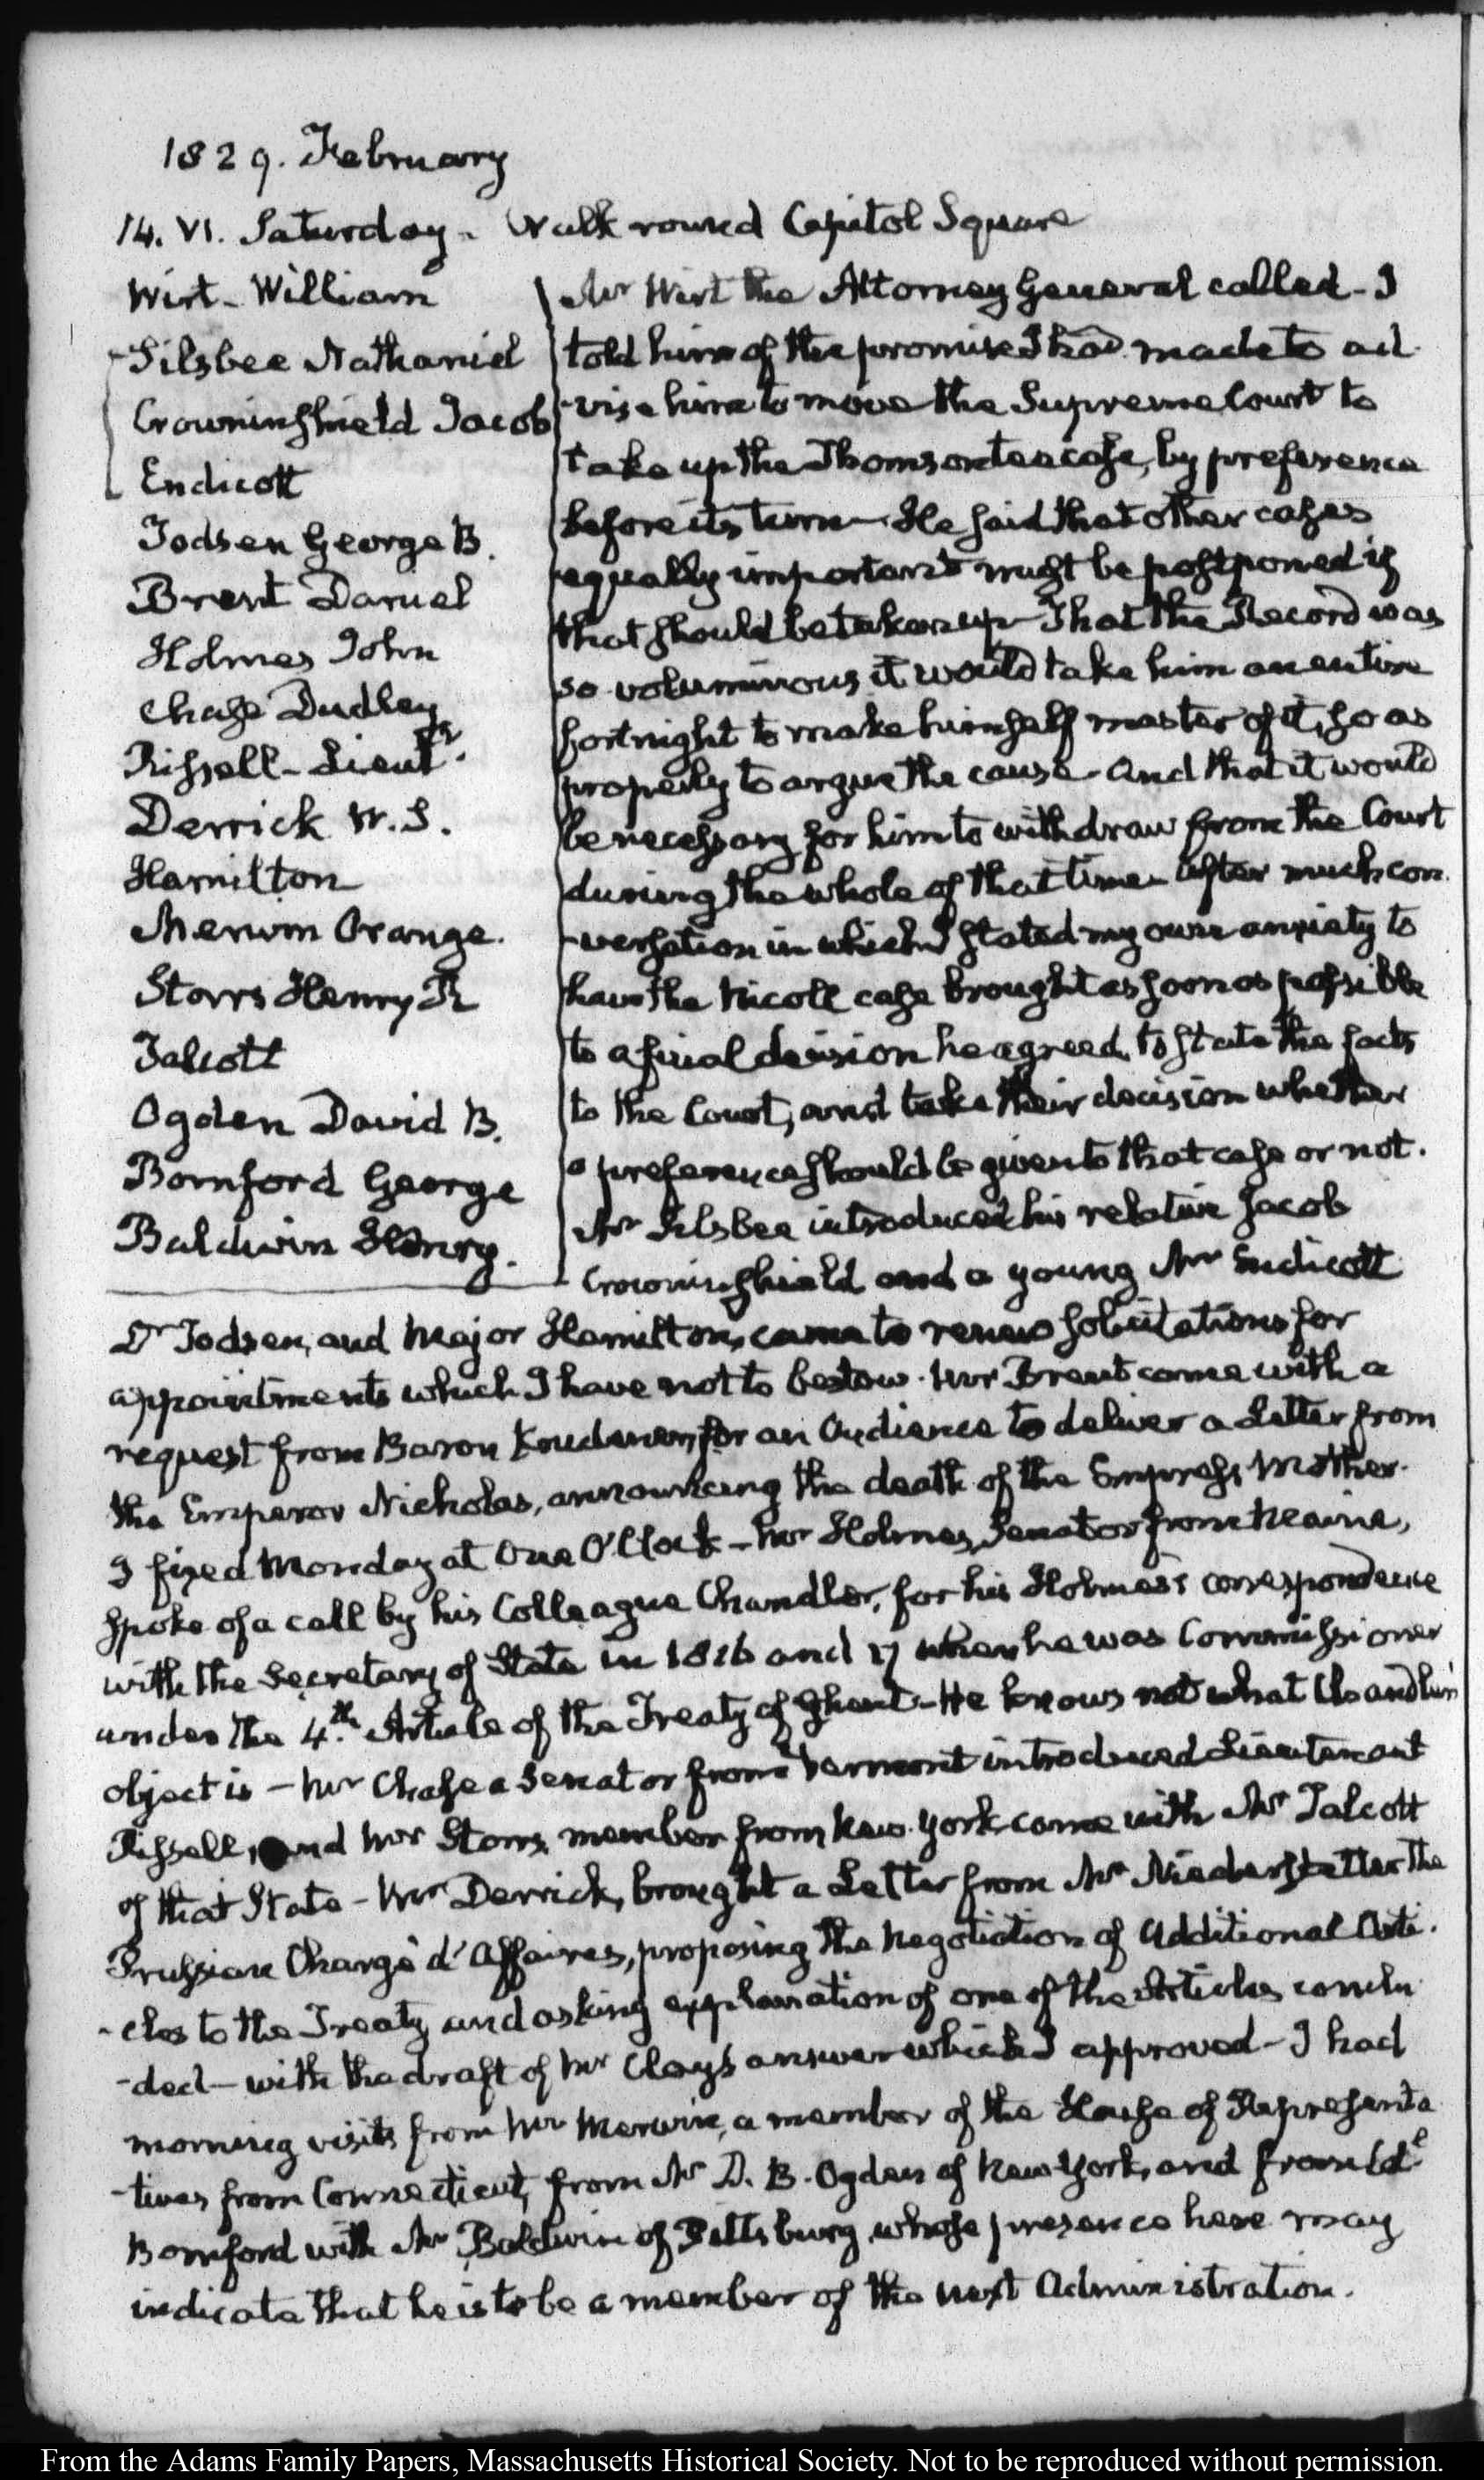 1829. February
14. VI. Saturday. Walk round Capitol Square
Wirt - William
Silsbee Nathaniel
Crowninshield Jacob
Endicott
Todsen George B.
Brent Daniel
Holmes John
Chase Dudley
Tissell - Lieutt.
Derrick W. S.
Hamilton
Merwin Orange.
Storrs Henry R
Talcott
Ogden David B.
Bomford George
Baldwin Henry.
Mr Wirt the Attorney General called - I
told him of the promise I had made to ad
-vise him to move the Supreme Court to
take up the Thomson tea case, by preference
before its turn - He said that other cases
equally important must be postponed if
that should be taken up - That the Record was
so voluminous it would take him an entire
fortnight to make himself master of it, so as
properly to argue the cause - And that it would
be necessary for him to withdraw from the Court
during the whole of that time - After much con
-versation in which I stated my own anxiety to
have the Nicoll case brought as soon as possible
to a final decision he agreed to state the facts
to the Court, and take their decision whether
a preference should be given to that case or not.
Mr Silsbee introduced his relative Jacob
Crowninshield and a young Mr Endicott
Dr Todsen, and Major Hamilton, came to renew solicitations for
appointments which I have not to bestow. Mr Brent came with a
request from Baron Krudener, for an Audience to deliver a Letter from
the Emperor Nicholas, announcing the death of the Empress Mother.
I fixed Monday at One O'Clock - Mr Holmes, Senator from Maine,
spoke of a call by his Colleague Chandler, for his Holmes's correspondence
with the Secretary of State in 1816 and 17 when he was Commissioner
under the 4.th Article of the Treaty of Ghent - He knows not what Chandler's
object is - Mr Chase a Senator from Vermont introduced Lieutenant
Tissell, and Mr Storrs, member from New-York, came with Mr Talcott
of that State - Mr Derrick, brought a Letter from Mr Niederstetter the
Prussian Chargé d'Affaires, proposing the negotiation of Additional Arti.
-cles to the Treaty and asking explanation of one of the Articles conclu
-ded - with the draft of Mr Clay's answer which I approved - I had
morning visits from Mr Merwin, a member of the House of Representa
-tives from Connecticut, from Mr D. B. Ogden of New-York, and from Col
Bomford with Mr Baldwin of Pittsburg, whose presence here may
indicate that he is to be a member of the next Administration.
From the Adams Family Papers, Massachusetts Historical Society. Not to be reproduced without permission.